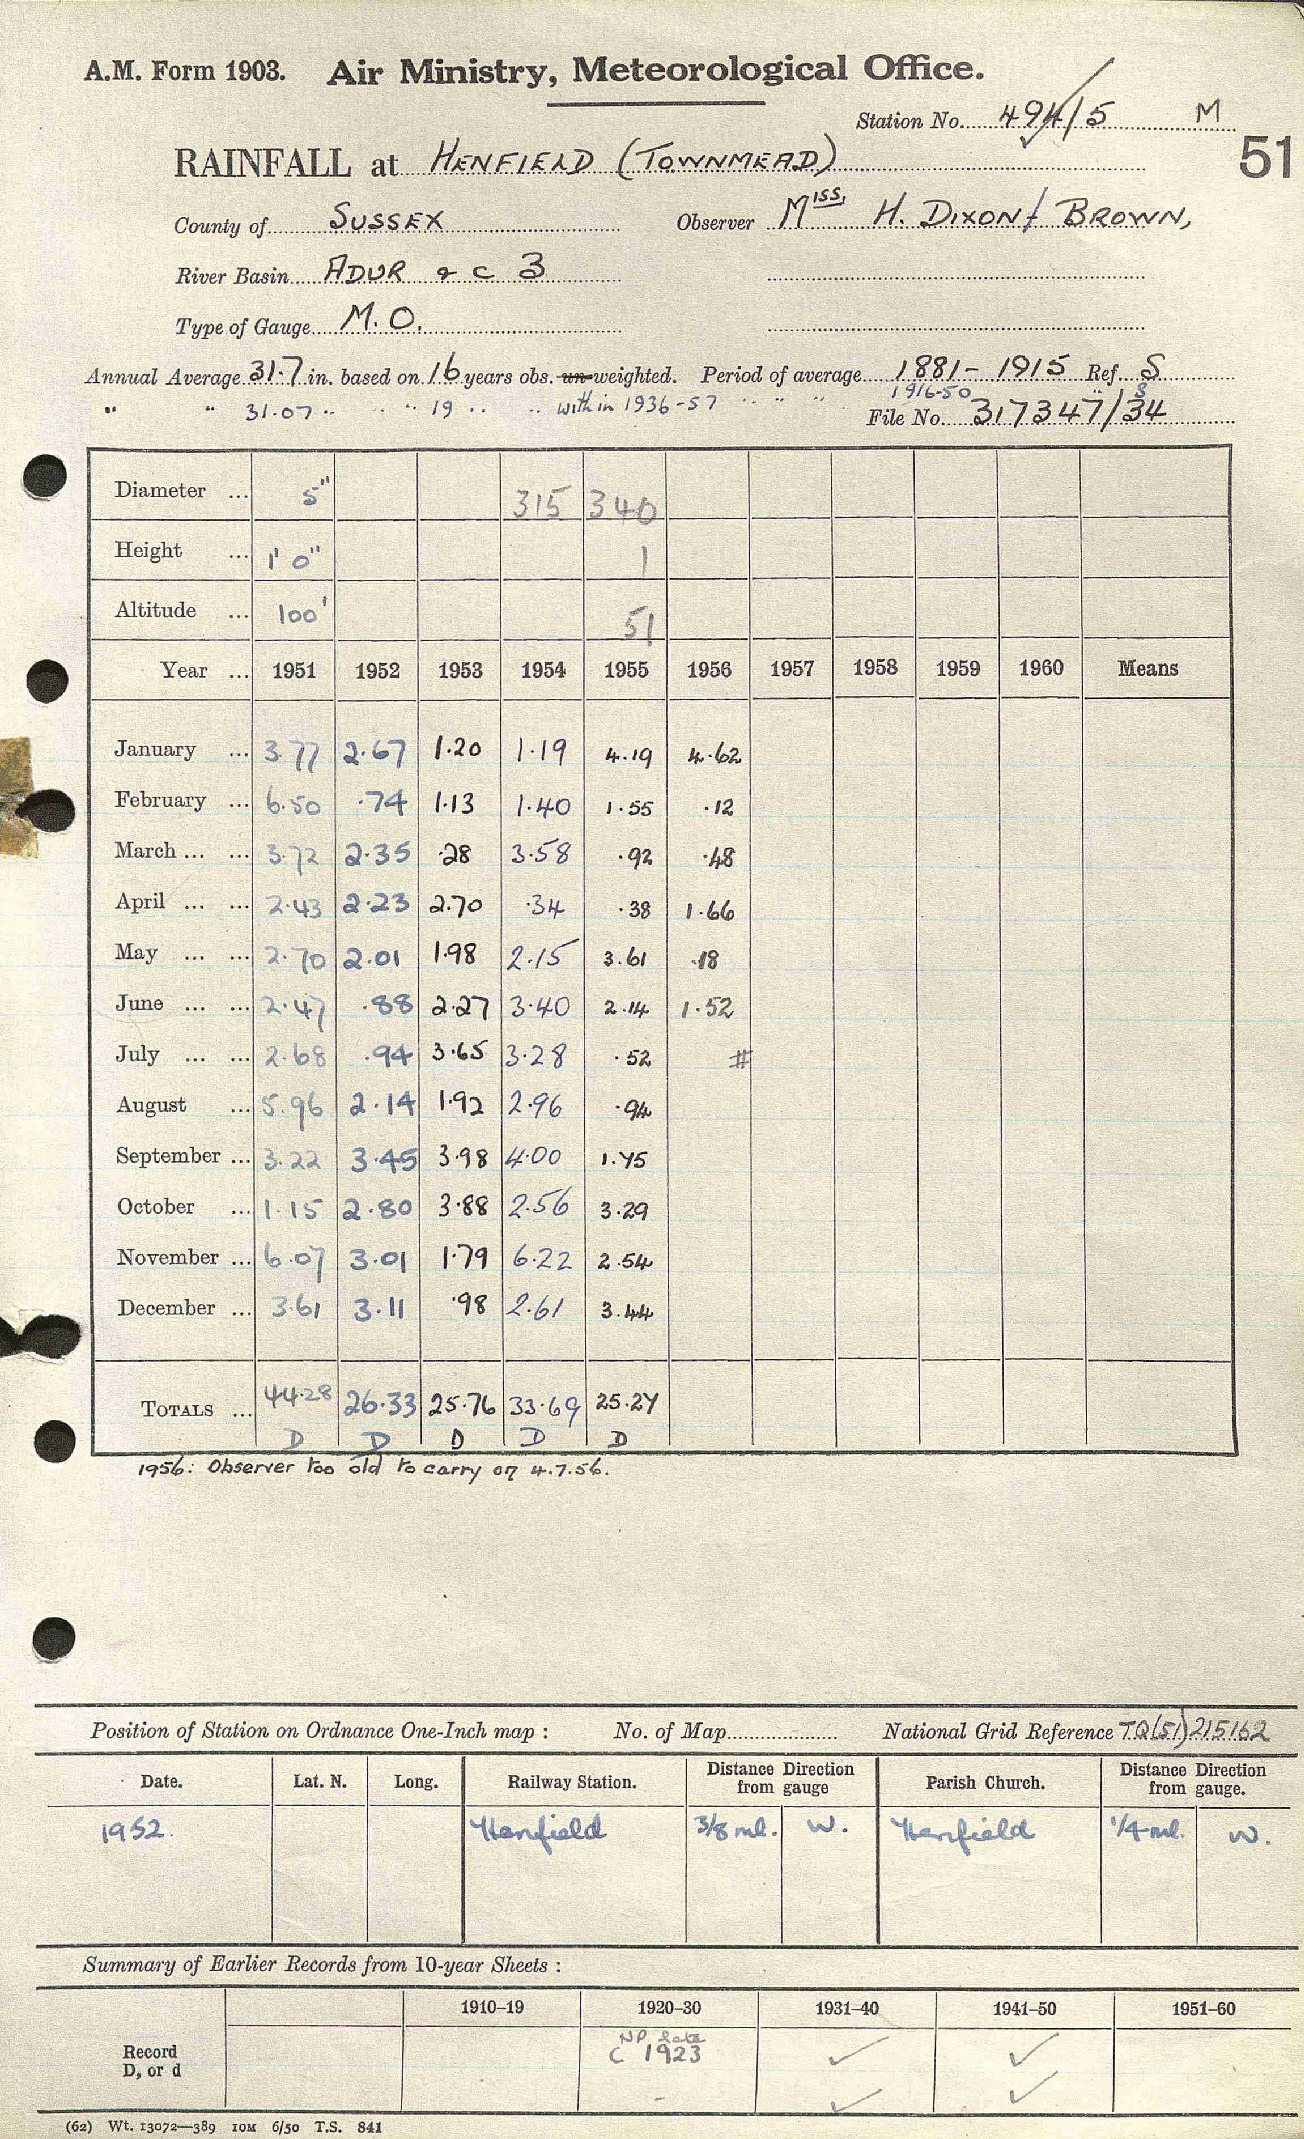 A.M. Form 1903. Air Ministry, Meteorological Office.
Station No. 494/5 M
51
RAINFALL at HENFIELD (TOWNMEAD)
County of SUSSEX Observer MISS. H. DIXON-BROWN,
River Basin ADUR & C 3
Type of Gauge M.O.
Annual Average 31.7 in. based on 16 years obs. un-weighted. Period of average 1881-1915 Ref. S
" " 31.07 " " 19 " " within 1936-57 " " " 1916-50 S
File No. 317347/34
Diameter ... 5" 315 340
Height ... 1' 0" 1
Altitude ... 100' 51
Year ... 1951 1952 1953 1954 1955 1956 1957 1958 1959 1960 Means
January ... 3.77 2.67 1.20 1.19 4.19 4.62
February ... 6.50 .74 1.13 1.40 1.55 .12
March ... ... 3.72 2.35 .28 3.58 .92 .48
April ... ... 2.43 2.23 2.70 .34 .38 1.66
May ... ... 2.70 2.01 1.98 2.15 3.61 .18
June ... ... 2.47 .88 2.27 3.40 2.14 1.52
July ... ... 2.68 .94 3.65 3.28 .52 #
August ... 5.96 2.14 1.92 2.96 .94
September ... 3.22 3.45 3.98 4.00 1.75
October ... 1.15 2.80 3.88 2.56 3.29
November ... 6.07 3.01 1.79 6.22 2.54
December ... 3.61 3.11 .98 2.61 3.44
TOTALS ... 44.28 26.33 25.76 33.69 25.27
D D D D D
1956: Observer too old to carry on 4.7.56.
Position of Station on Ordnance One-Inch map : No. of Map National Grid Reference TQ(51)215162
Date. Lat. N. Long. Railway Station. Distance Direction from gauge Parish Church. Distance Direction from gauge.
1952. Henfield 3/8 ml. W. Henfield 1/4 ml. W.
Summary of Earlier Records from 10-year Sheets :
1910-19 1920-30 1931-40 1941-50 1951-60
Record D, or d NP late C 1923 ✓ ✓
- ✓ ✓
(62) Wt. 13072—389 10M 6/50 T.S. 841